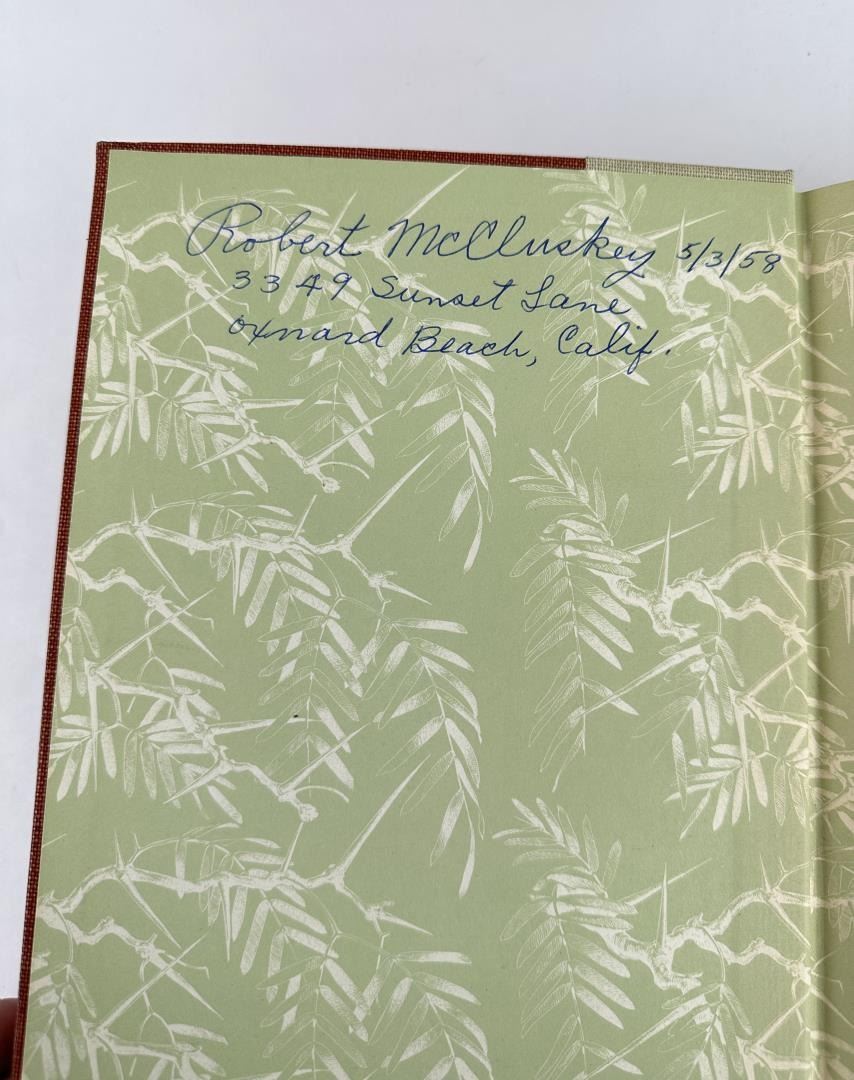 Robert McCluskey 5/3/58
3349 Sunset Lane
Oxnard Beach, Calif.